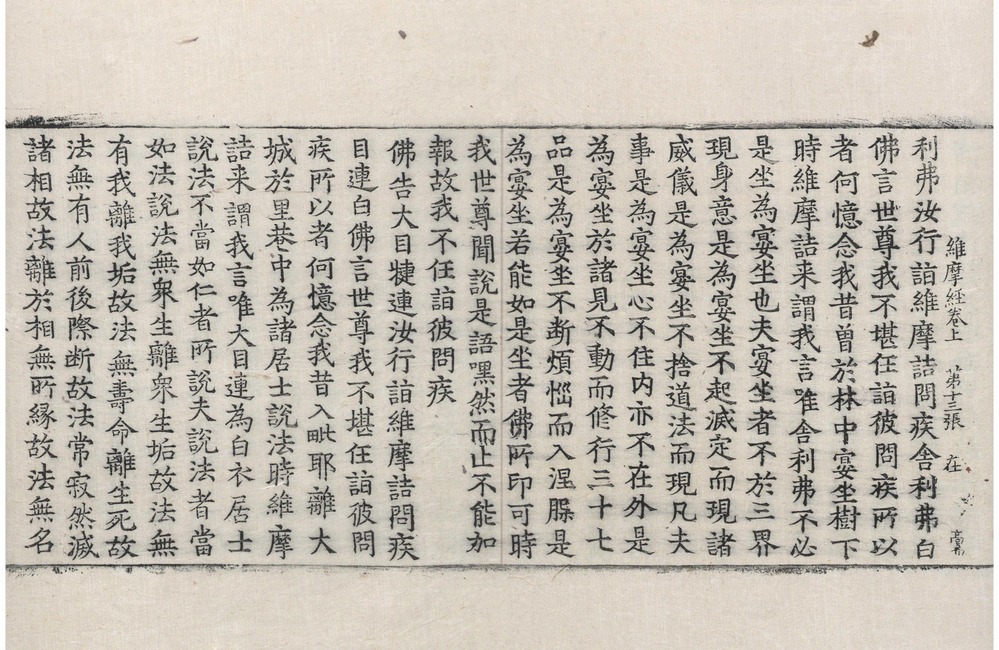 維摩経巻上 第十三張 在
利弗汝行詣維摩詰問疾舎利弗白
佛言世尊我不堪任詣彼問疾所以
者何憶念我昔曽於林中宴坐樹下
時維摩詰来謂我言唯舎利弗不必
是坐為宴坐也夫宴坐者不於三界
現身意是為宴坐不起滅定而現諸
威儀是為宴坐不捨道法而現凡夫
事是為宴坐心不住内亦不在外是
為宴坐於諸見不動而修行三十七
品是為宴坐不断煩惱而入涅槃是
為宴坐若能如是坐者佛所印可時
我世尊聞説是語嘿然而止不能加
報故我不任詣彼問疾
佛告大目揵連汝行詣維摩詰問疾
目連白佛言世尊我不堪任詣彼問
疾所以者何憶念我昔入毗耶離大
城於里巷中為諸居士説法時維摩
詰来謂我言唯大目連為白衣居士
説法不當如仁者所説夫説法者當
如法説法無衆生離衆生垢故法無
有我離我垢故法無壽命離生死故
法無有人前後際断故法常寂然滅
諸相故法離於相無所縁故法無名